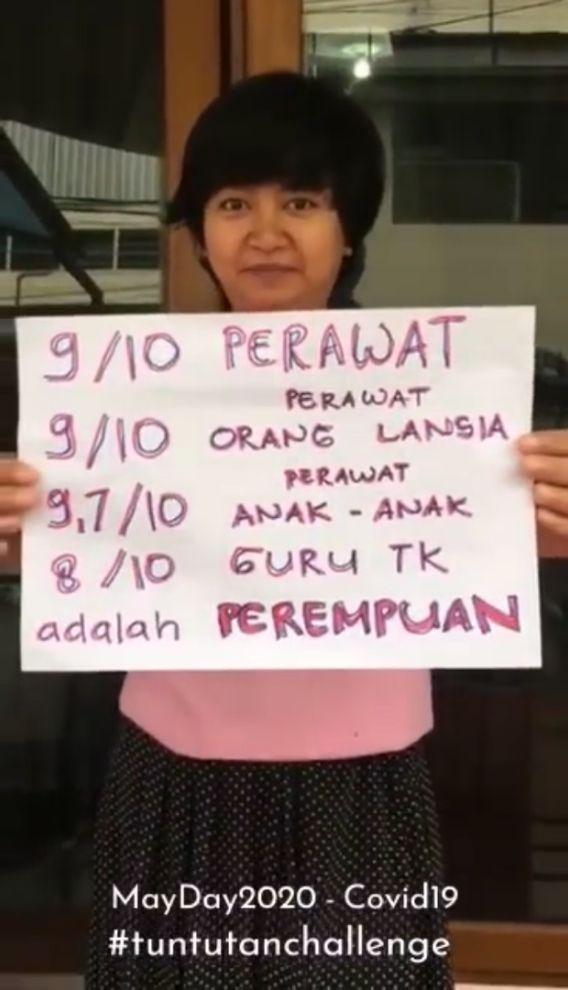 9/10 PERAWAT
PERAWAT
9/10 ORANG LANSIA
PERAWAT
9,7/10 ANAK - ANAK
8/10 GURU TK
adalah PEREMPUAN
MayDay2020 - Covid19
#tuntutanchallenge